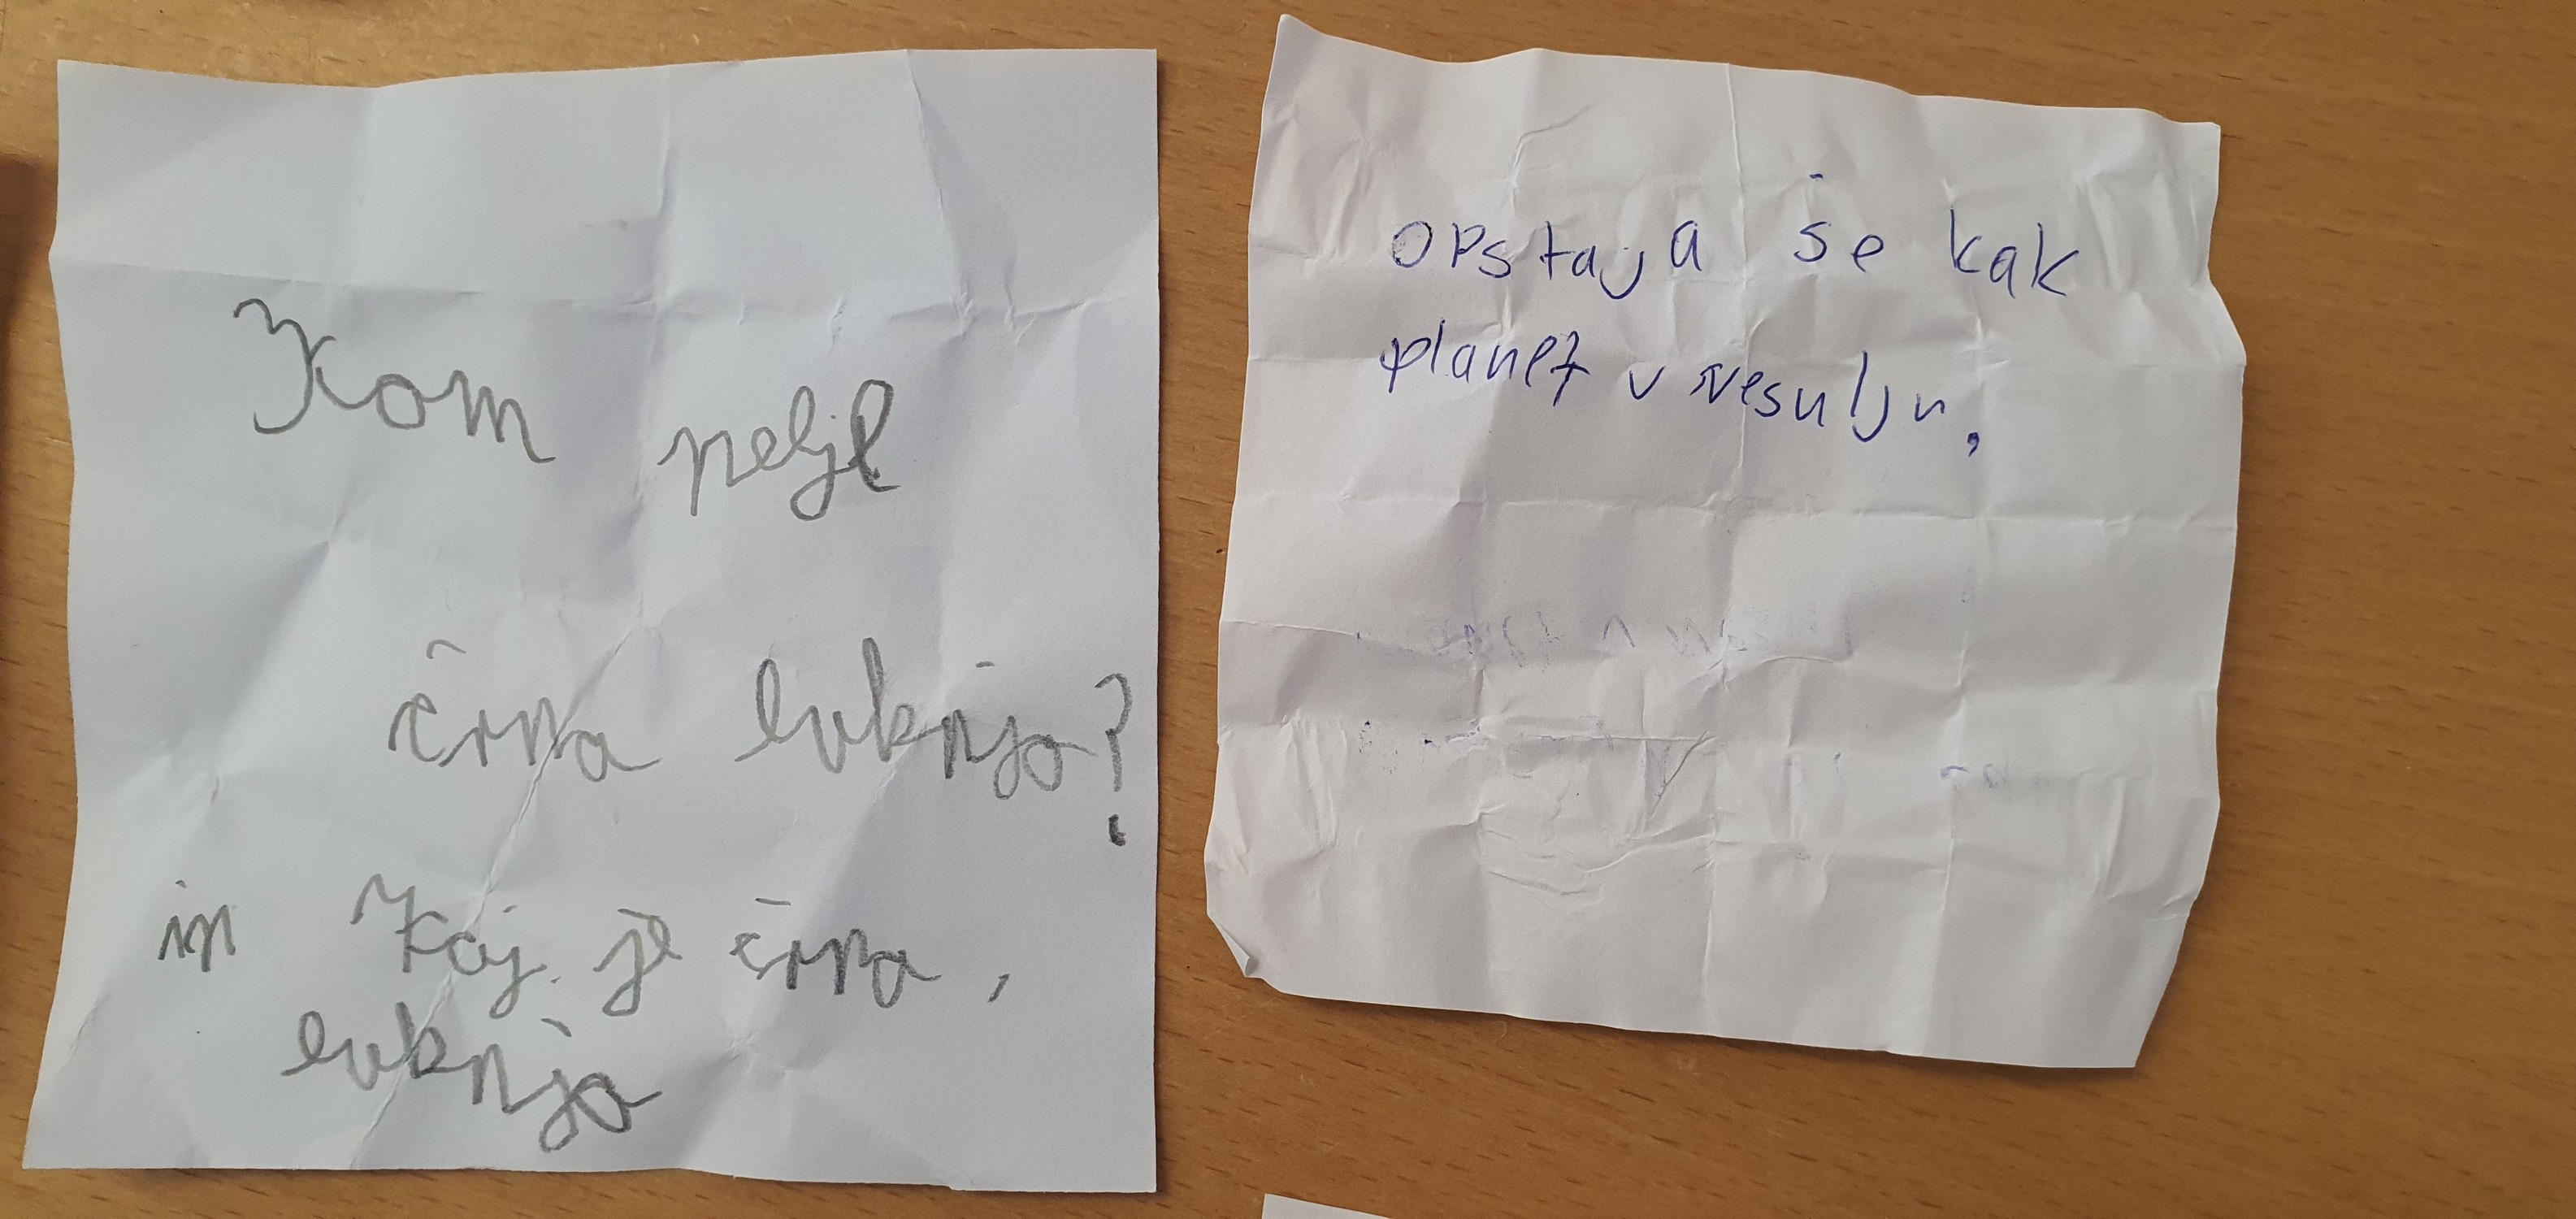 Kom pelje
črna luknja?
in Kaj je črna,
luknja
opstaja še kak
planet v vesulju,